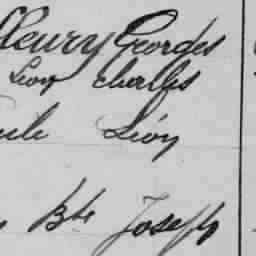 fleury Georges
Léon Charles
Léon
Bte Joseph